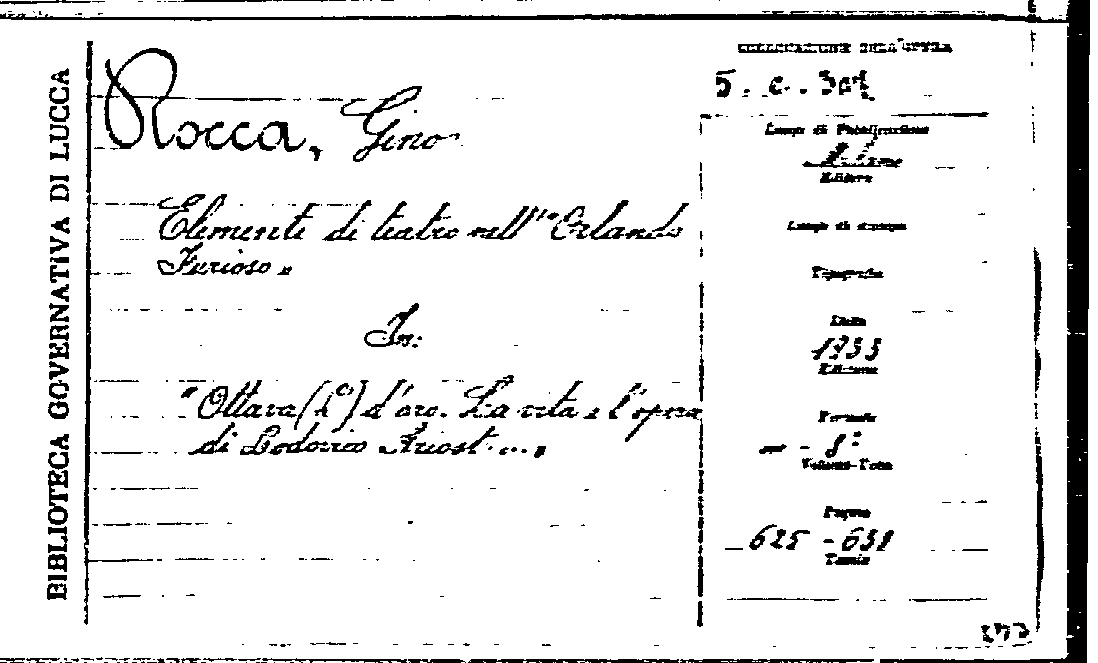 BIBLIOTECA GOVERNATIVA DI LUCCA
Rocca, Gino
Elementi di teatro nell'"Orlando
Furioso"
In:
"Ottava (L') d'oro. La vita e l'opera
di Lodovico Ariost..."
COLLOCAZIONE DELL'OPERA
5. c.
Luogo di Pubblicazione
Milano
Editore
Luogo di stampa
Tipografia
Data
1933
Edizione
Formato
- 8°
Pagine
625 - 638